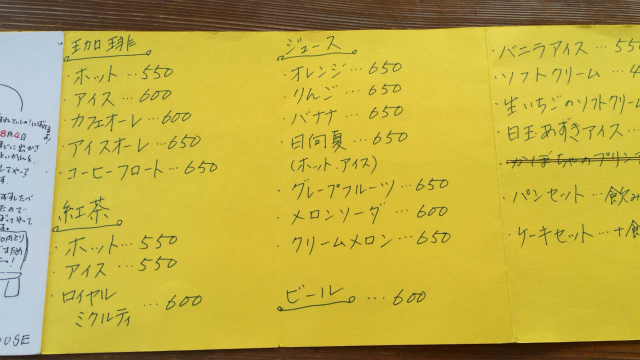 珈琲
・ホット…550
・アイス…600
・カフェオーレ…600
・アイスオーレ…650
・コーヒーフロート…650
紅茶
・ホット…550
・アイス…550
・ロイヤル
ミクルティ…600
ジュース
・オレンジ…650
・りんご…650
・バナナ…650
・日向夏…650
(ホット.アイス)
・グレープフルーツ…650
・メロンソーダ…600
・クリームメロン…650
ビール…600
・バニラアイス…550
・ソフトクリーム…
・生いちごのソフトクリーム
・白玉あずきアイス…
・かぼちゃのプリン
・パンセット…飲み
・ケーキセット…+飲
8月4日